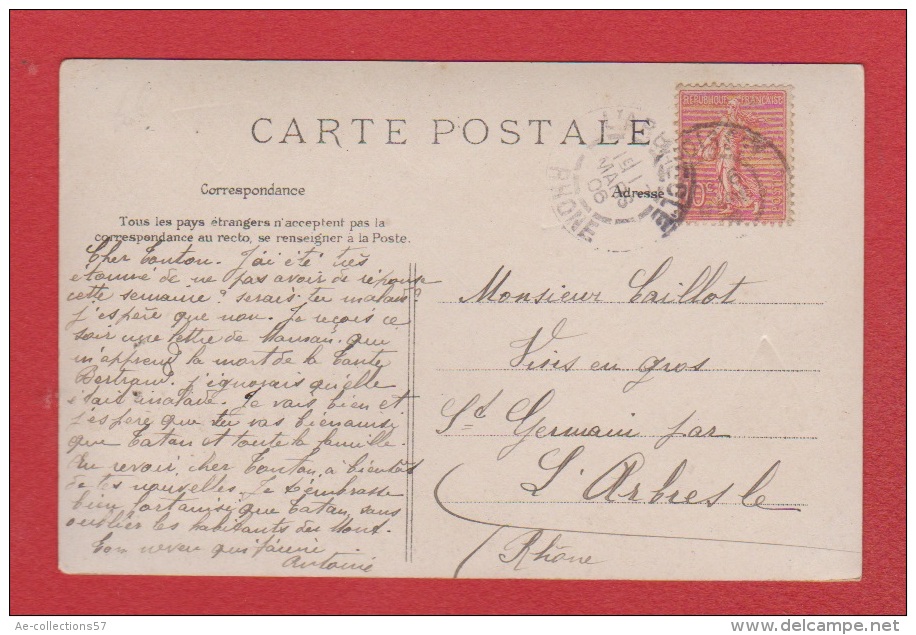 CARTE POSTALE
Correspondance
Adresse
Tous les pays étrangers n'acceptent pas la
correspondance au recto, se renseigner à la Poste.
REPUBLIQUE FRANÇAISE
10c
MARS
06
RHONE
Cher Tonton. J'ai été très
étonné de ne pas avoir de réponse
cette semaine? serais-tu malade?
j'espère que non. Je reçois ce
soir une lettre de Maman qui
m'apprend la mort de la Tante
Bertrand. J'ignorais qu'elle
était malade. Je vais bien et
j'espère que tu vas bien ainsi
que Tatan et toute la famille.
Au revoir, cher Tonton, à bientôt
de tes nouvelles. Je t'embrasse
bien fort ainsi que Tatan, sans
oublier les habitants du Mont.
Ton neveu qui t'aime
Antoine
Monsieur Caillot
Vins en gros
St Germain par
L'Arbresle
Rhône
Ae-collections57
http://www.delcampe.net